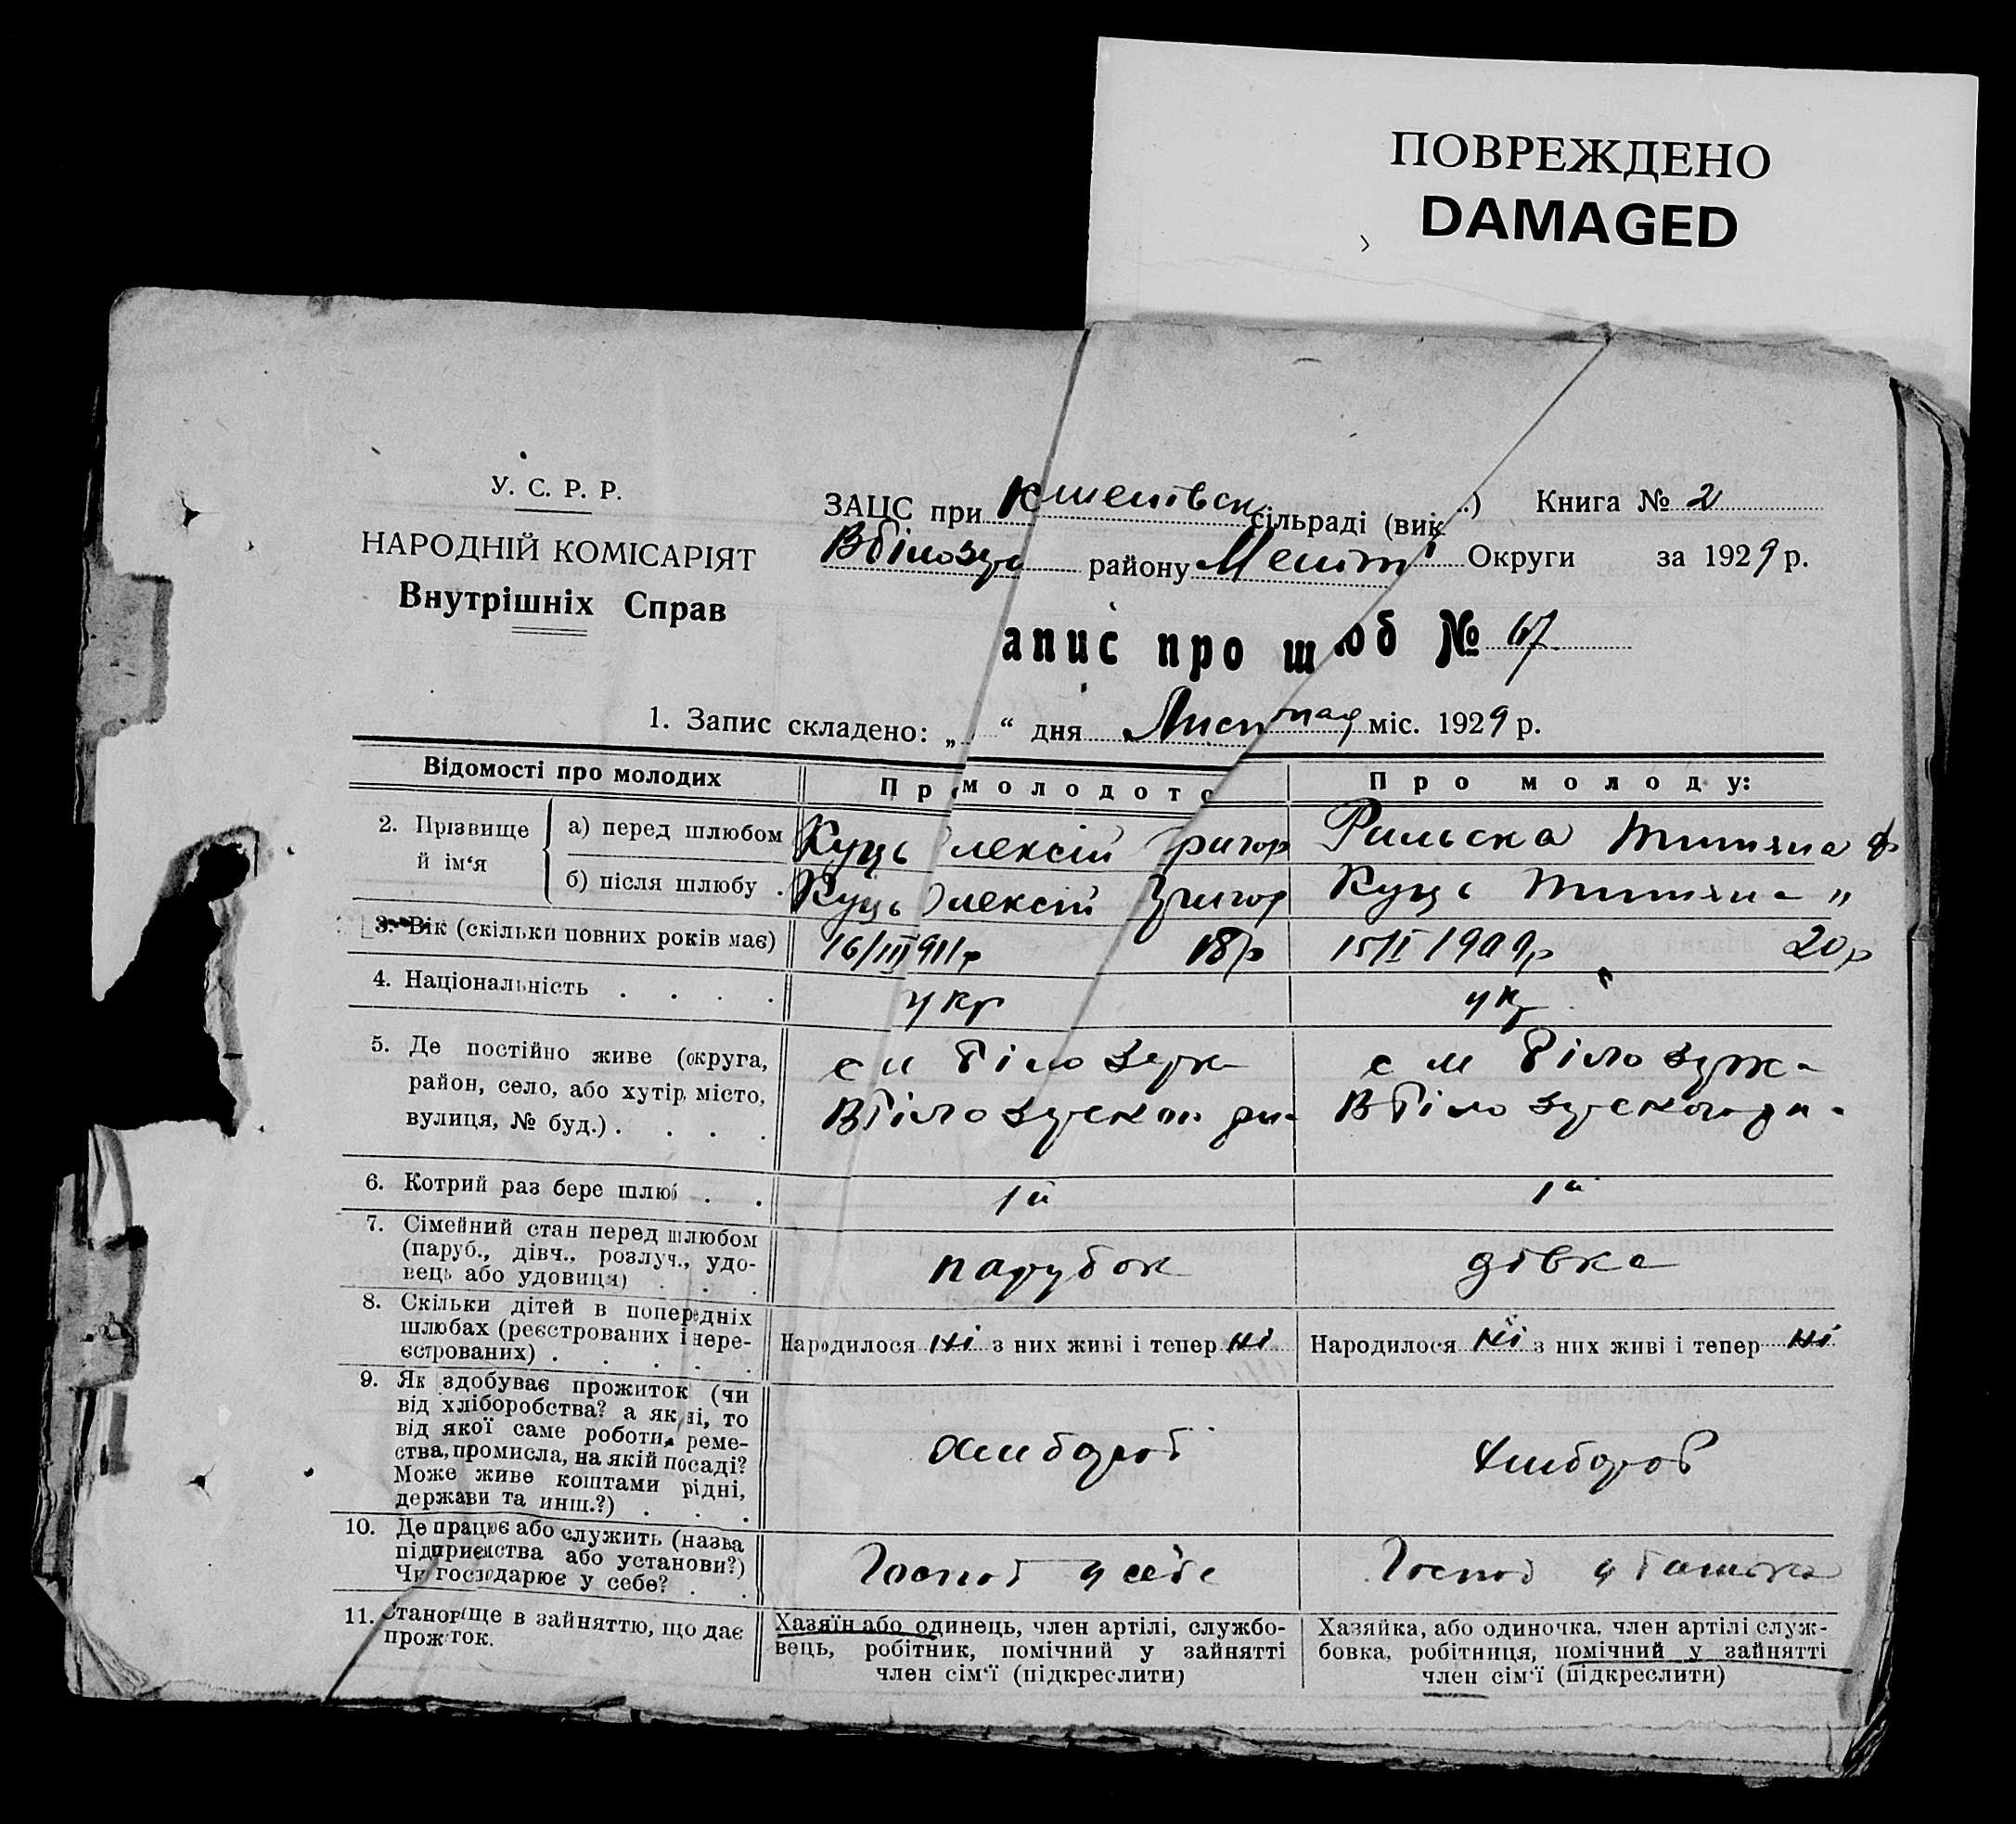 ПОВРЕЖДЕНО
DAMAGED
У. С. Р. Р.
НАРОДНІЙ КОМІСАРІЯТ
Внутрішніх Справ
ЗАЦС при сільраді (вик ..) Книга № 2
району Меліт Округи за 1929 р.
апис про ш юб № 67
1. Запис складено: „ “ дня Листопад міс. 1929 р.
Відомості про молодих
Пр молодого
Про молоду:
2. Прізвище й ім‘я
а) перед шлюбом
Куць лексій Григор
Рильска Титяна Ф
б) після шлюбу .
Куць лексій Григор
Куць Титяна „
3. Вік (скільки повних років має)
16/III 911р 18р
15/I 1909р 20р
4. Національність . . . .
укр
укр
5. Де постійно живе (округа,
район, село, або хутір, місто,
вулиця, № буд.) . . . .
с м Білозерк
В Білозерског ра-
с м Білозерка
В Білозерского ра-
6. Котрий раз бере шлюб . .
1й
1й
7. Сімейний стан перед шлюбом
(паруб., дівч., розлуч., удо-
вець або удовиця) . . .
парубок
дівка
8. Скільки дітей в попередніх
шлюбах (реєстрованих і нере-
єстрованих) . . . . .
Народилося ні з них живі і тепер ні
Народилося ні з них живі і тепер ні
9. Як здобуває прожиток (чи
від хліборобства? а як ні, то
від якої саме роботи, реме-
ства, промисла, на якій посаді?
Може живе коштами рідні,
держави та инш.?) . . .
хлибороб
хлибороб
10. Де працює або служить (назва
підприємства або установи?)
Чи господарює у себе? . .
Господ у себе
Господ у батька
11. Становище в зайняттю, що дає
прожиток.
Хазяїн або одинець, член артілі, службо-
вець, робітник, помічний у зайнятті
член сім‘ї (підкреслити)
Хазяйка, або одиночка, член артілі служ-
бовка, робітниця, помічний у зайнятті
член сім‘ї (підкреслити)